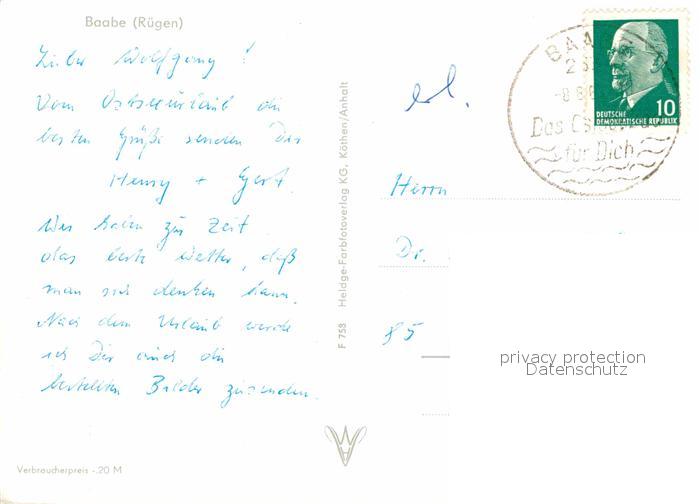 Baabe (Rügen)
Lieber Wolfgang!
Vom Ostseeurlaub die
besten Grüße senden Dir
Henry + Gert.
Wir haben zur Zeit
das beste Wetter, daß
man sich denken kann.
Nach dem Urlaub werde
ich Dir auch die
bestellten Bilder zusenden.
Verbraucherpreis -.20 M
F 758 Heldge-Farbfotoverlag KG, Köthen/Anhalt
erl.
Herrn
Dr.
85
BAA
-8.8
Das
für Dich
10
DEUTSCHE
DEMOKRATISCHE REPUBLIK
privacy protection
Datenschutz